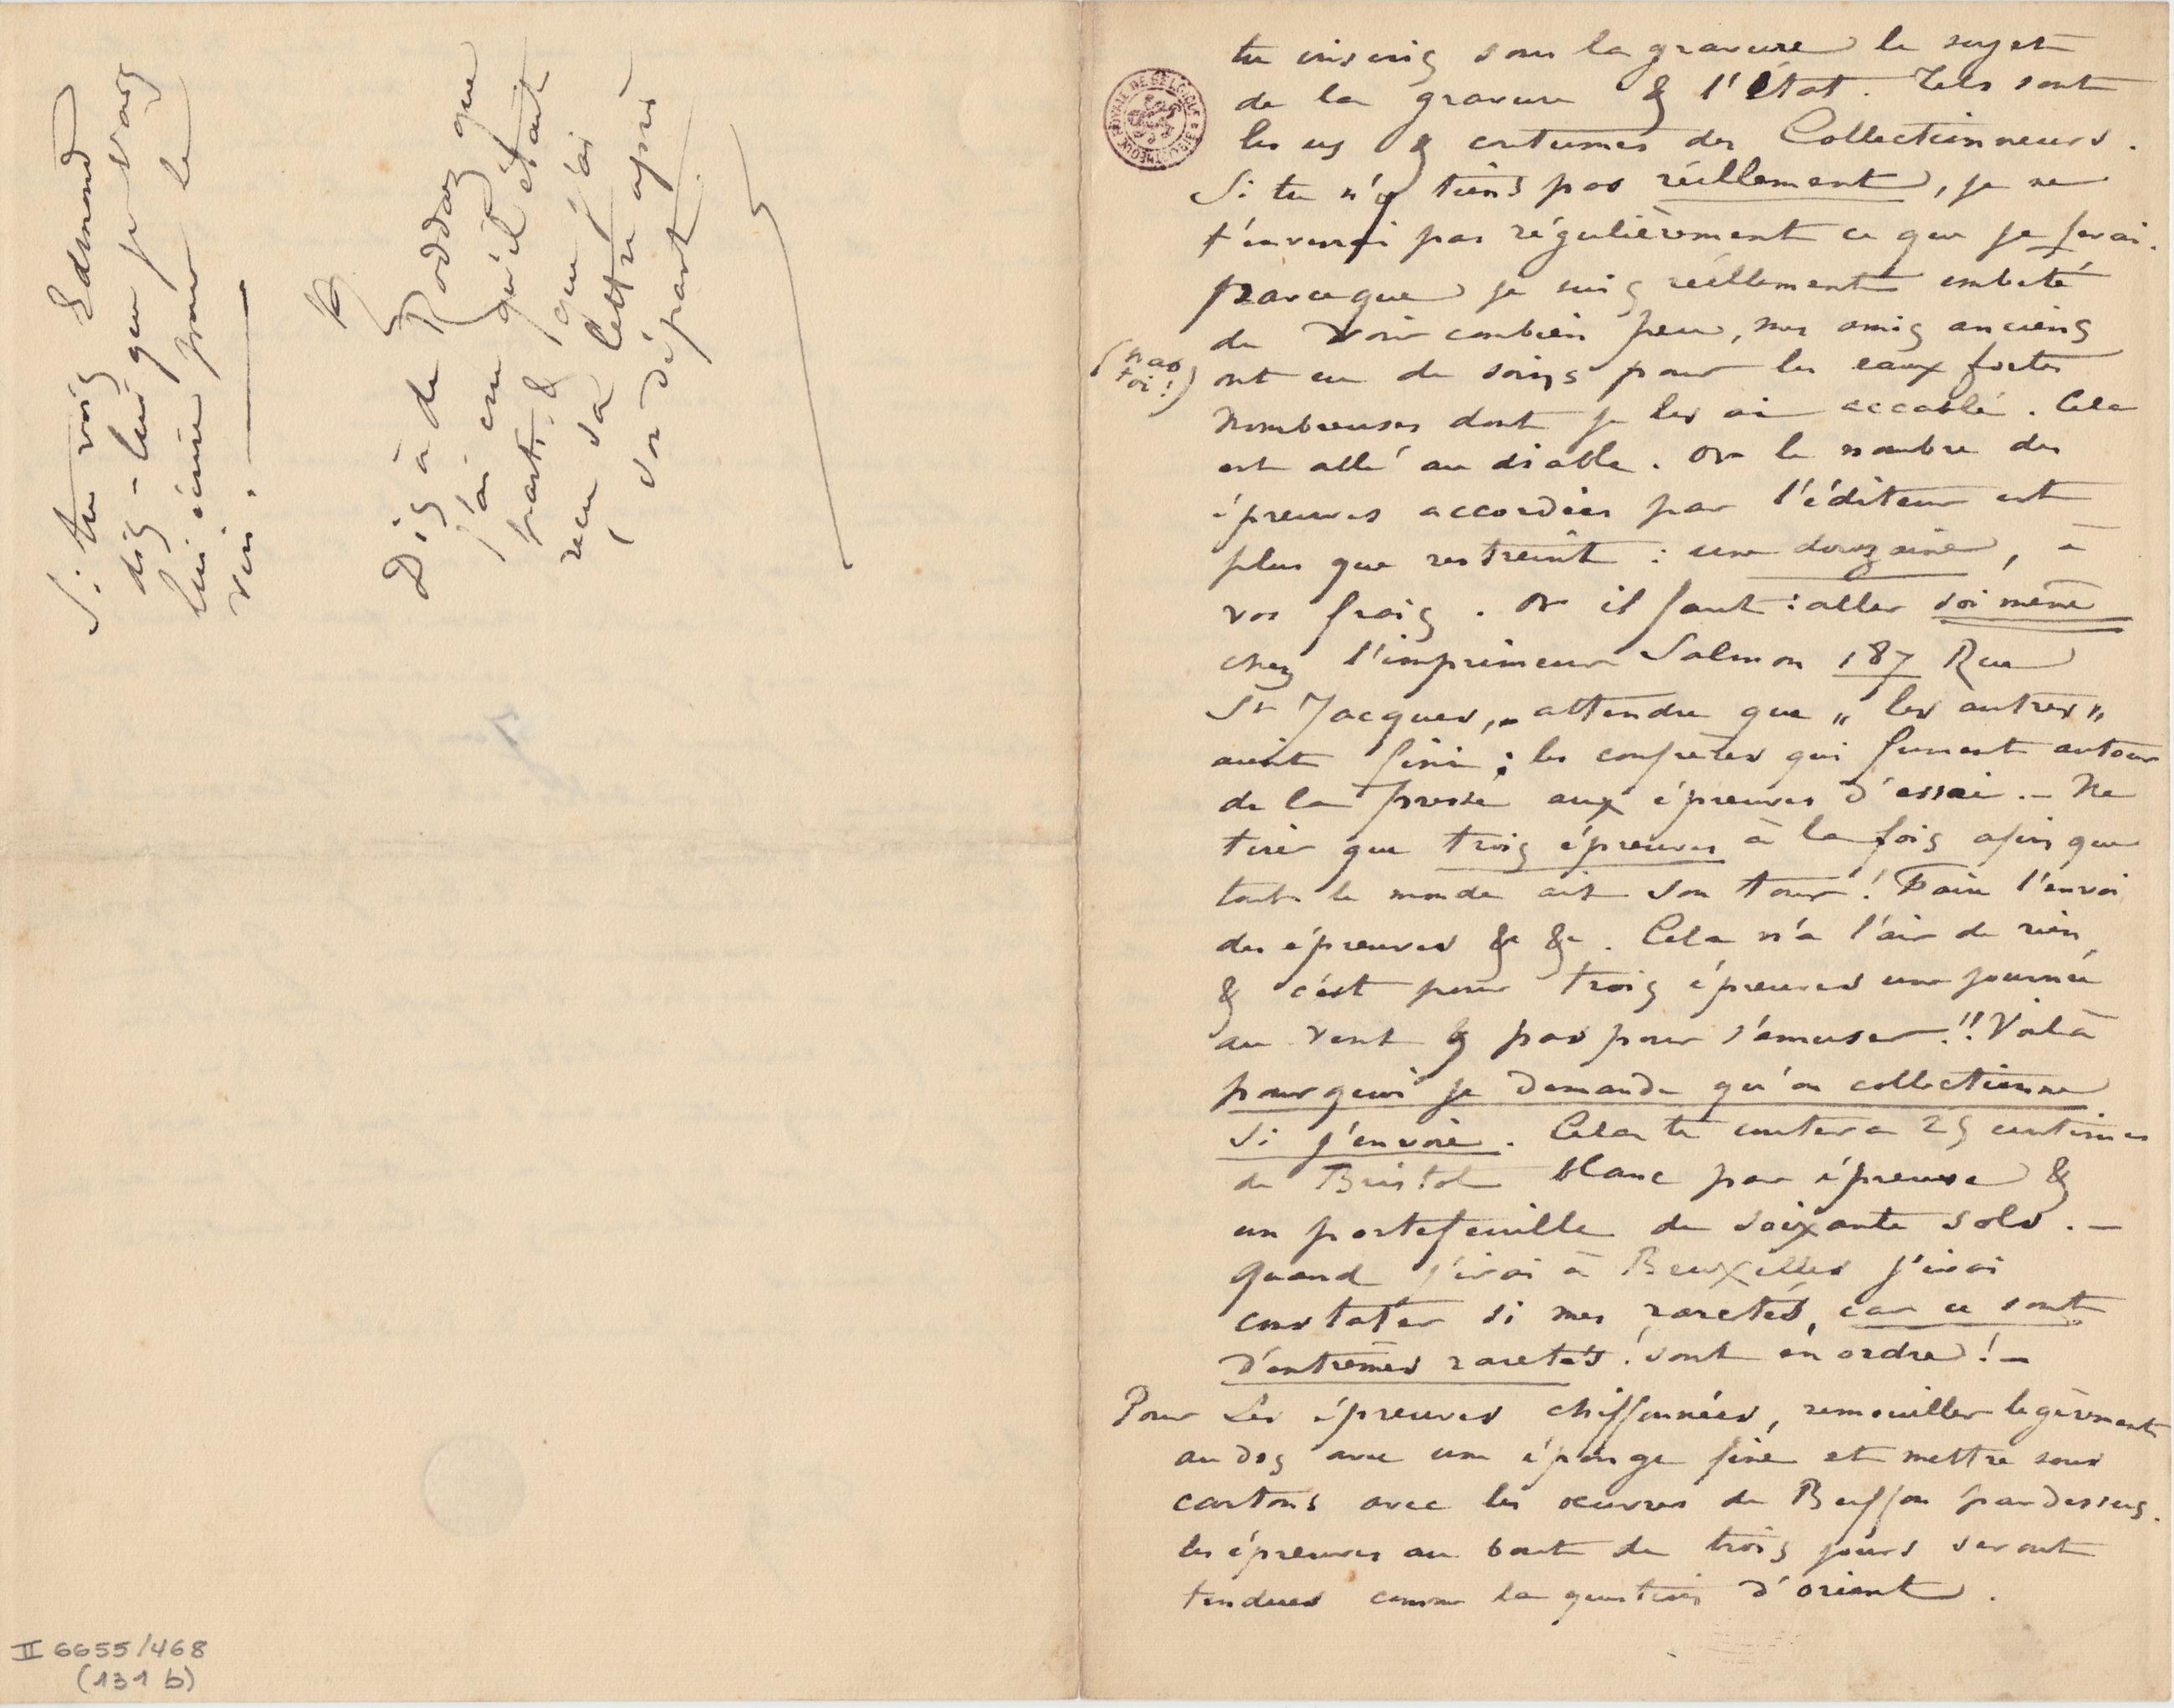 Si tu vois Edmond
dis-lui que je vais
lui écrire pour le
vin.
Dis à de Roddaz que
j'ai cru qu'il était
parti & que j'ai
reçu sa lettre après
son départ.
tu inscris sous la gravure le sujet
de la gravure & l'État. Tels sont
les us & coutumes des Collectionneurs.
Si tu n'y tiens pas réellement, je ne
t'enverrai pas régulièrement ce que je ferai.
parceque je suis réellement embêté
de voir combien peu, mes amis anciens
(pas
toi!)
ont eu de soins pour les eaux fortes
nombreuses dont je les ai accablé. Cela
est allé au diable. Or le nombre des
épreuves accordées par l'éditeur est
plus que restreint : une douzaine, à
vos frais. Or il faut : aller soi même
chez l'imprimeur Salmon 187 Rue
St Jacques, - attendre que „ les autres „
aient fini ; les confrères qui fument autour
de la presse aux épreuves d'essai. - Ne
tirer que trois épreuves à la fois afin que
tout le monde ait son tour ! Faire l'envoi
des épreuves &a &a. Cela n'a l'air de rien,
& c'est pour trois épreuves une journée
au vent & pas pour s'amuser !! Voilà
pourquoi je demande qu'on collectionne
si j'envoie. Cela te coutera 25 centimes
de Bristol blanc par épreuve &
un portefeuille de soixante sols. -
Quand j'irai à Bruxelles j'irai
constater si mes raretés, car ce sont
d'extrêmes raretés ! sont en ordre ! -
Pour les épreuves chiffonnées, remouiller legèrement
au dos avec une éponge fine et mettre sous
cartons avec les œuvres de Buffon pardessus.
les épreuves au bout de trois jours seront
tendues comme la question d'orient.
II 6655/468
(131 b)